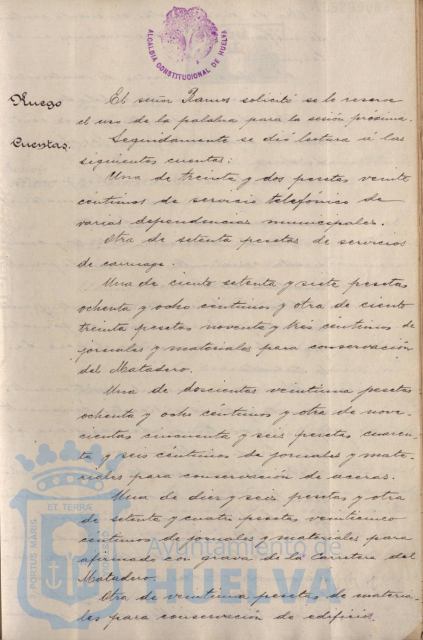 ALCALDIA CONSTITUCIONAL DE HUELVA
Ruego
El señor Ramos solicitó se le reserve
el uso de la palabra para la sesión próxima.
Cuentas.
Seguidamente se dió lectura á las
siguientes cuentas:
Una de treinta y dos pesetas veinte
centimos de servicio telefónico de
varias dependencias municipales.
Otra de setenta pesetas de servicios
de carruage.
Una de ciento setenta y siete pesetas
ochenta y ocho centimos y otra de ciento
treinta pesetas noventa y tres centimos de
jornales y materiales para conservación
del Matadero.
Una de doscientas veintiuna pesetas
ochenta y ocho centimos y otra de nove-
cientas cincuenta y seis pesetas cuaren-
ta y seis céntimos de jornales y mate-
riales para conservación de aceras.
Una de diez y seis pesetas y otra
de setenta y cuatro pesetas veinticinco
centimos de jornales y materiales para
afirmado con grava de la Carretera del
Matadero.
Otra de veintiuna pesetas de materia-
les para conservación de edificios.
PORTUS MARIS ET TERRAE
Ayuntamiento de
HUELVA